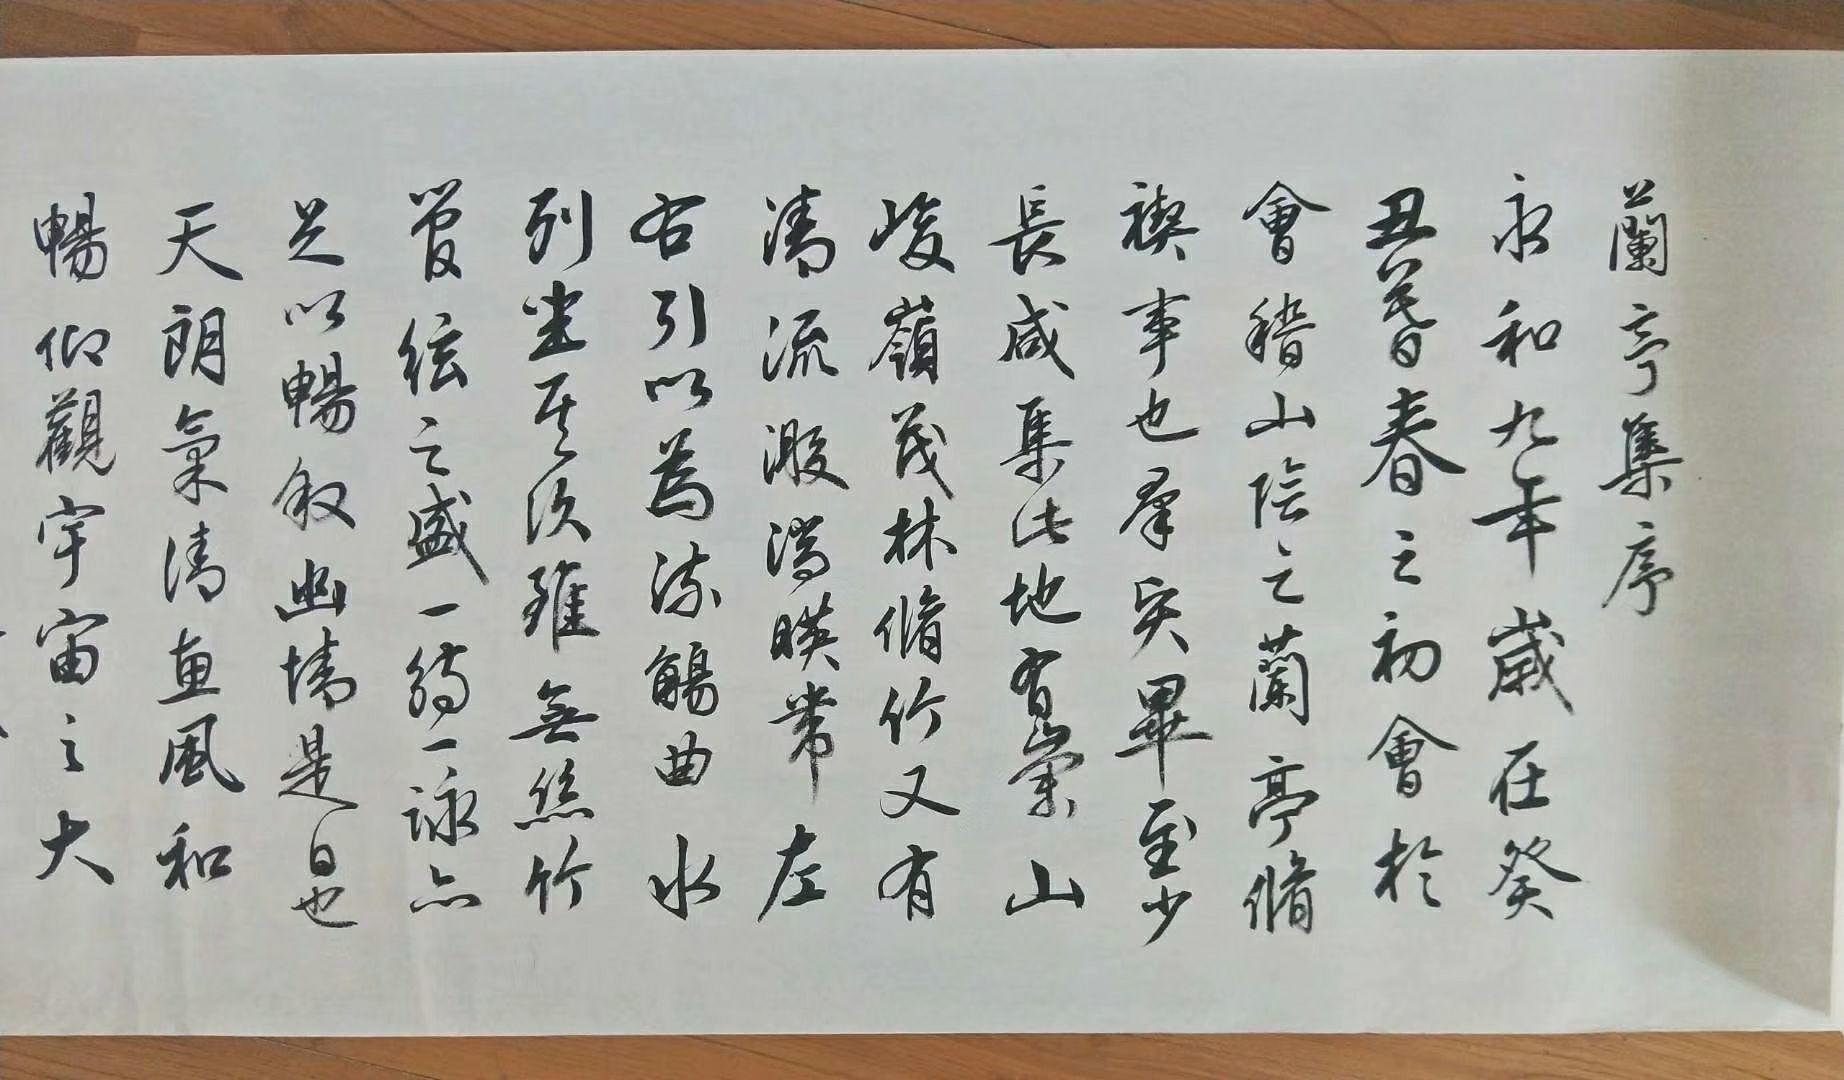 蘭亭集序
永和九年歲在癸
丑暮春之初會於
會稽山陰之蘭亭脩
禊事也羣賢畢至少
長咸集此地有崇山
峻嶺茂林脩竹又有
清流激湍暎帶左
右引以為流觴曲水
列坐其次雖無絲竹
管絃之盛一觴一詠亦
足以暢敘幽情是日也
天朗氣清惠風和
暢仰觀宇宙之大